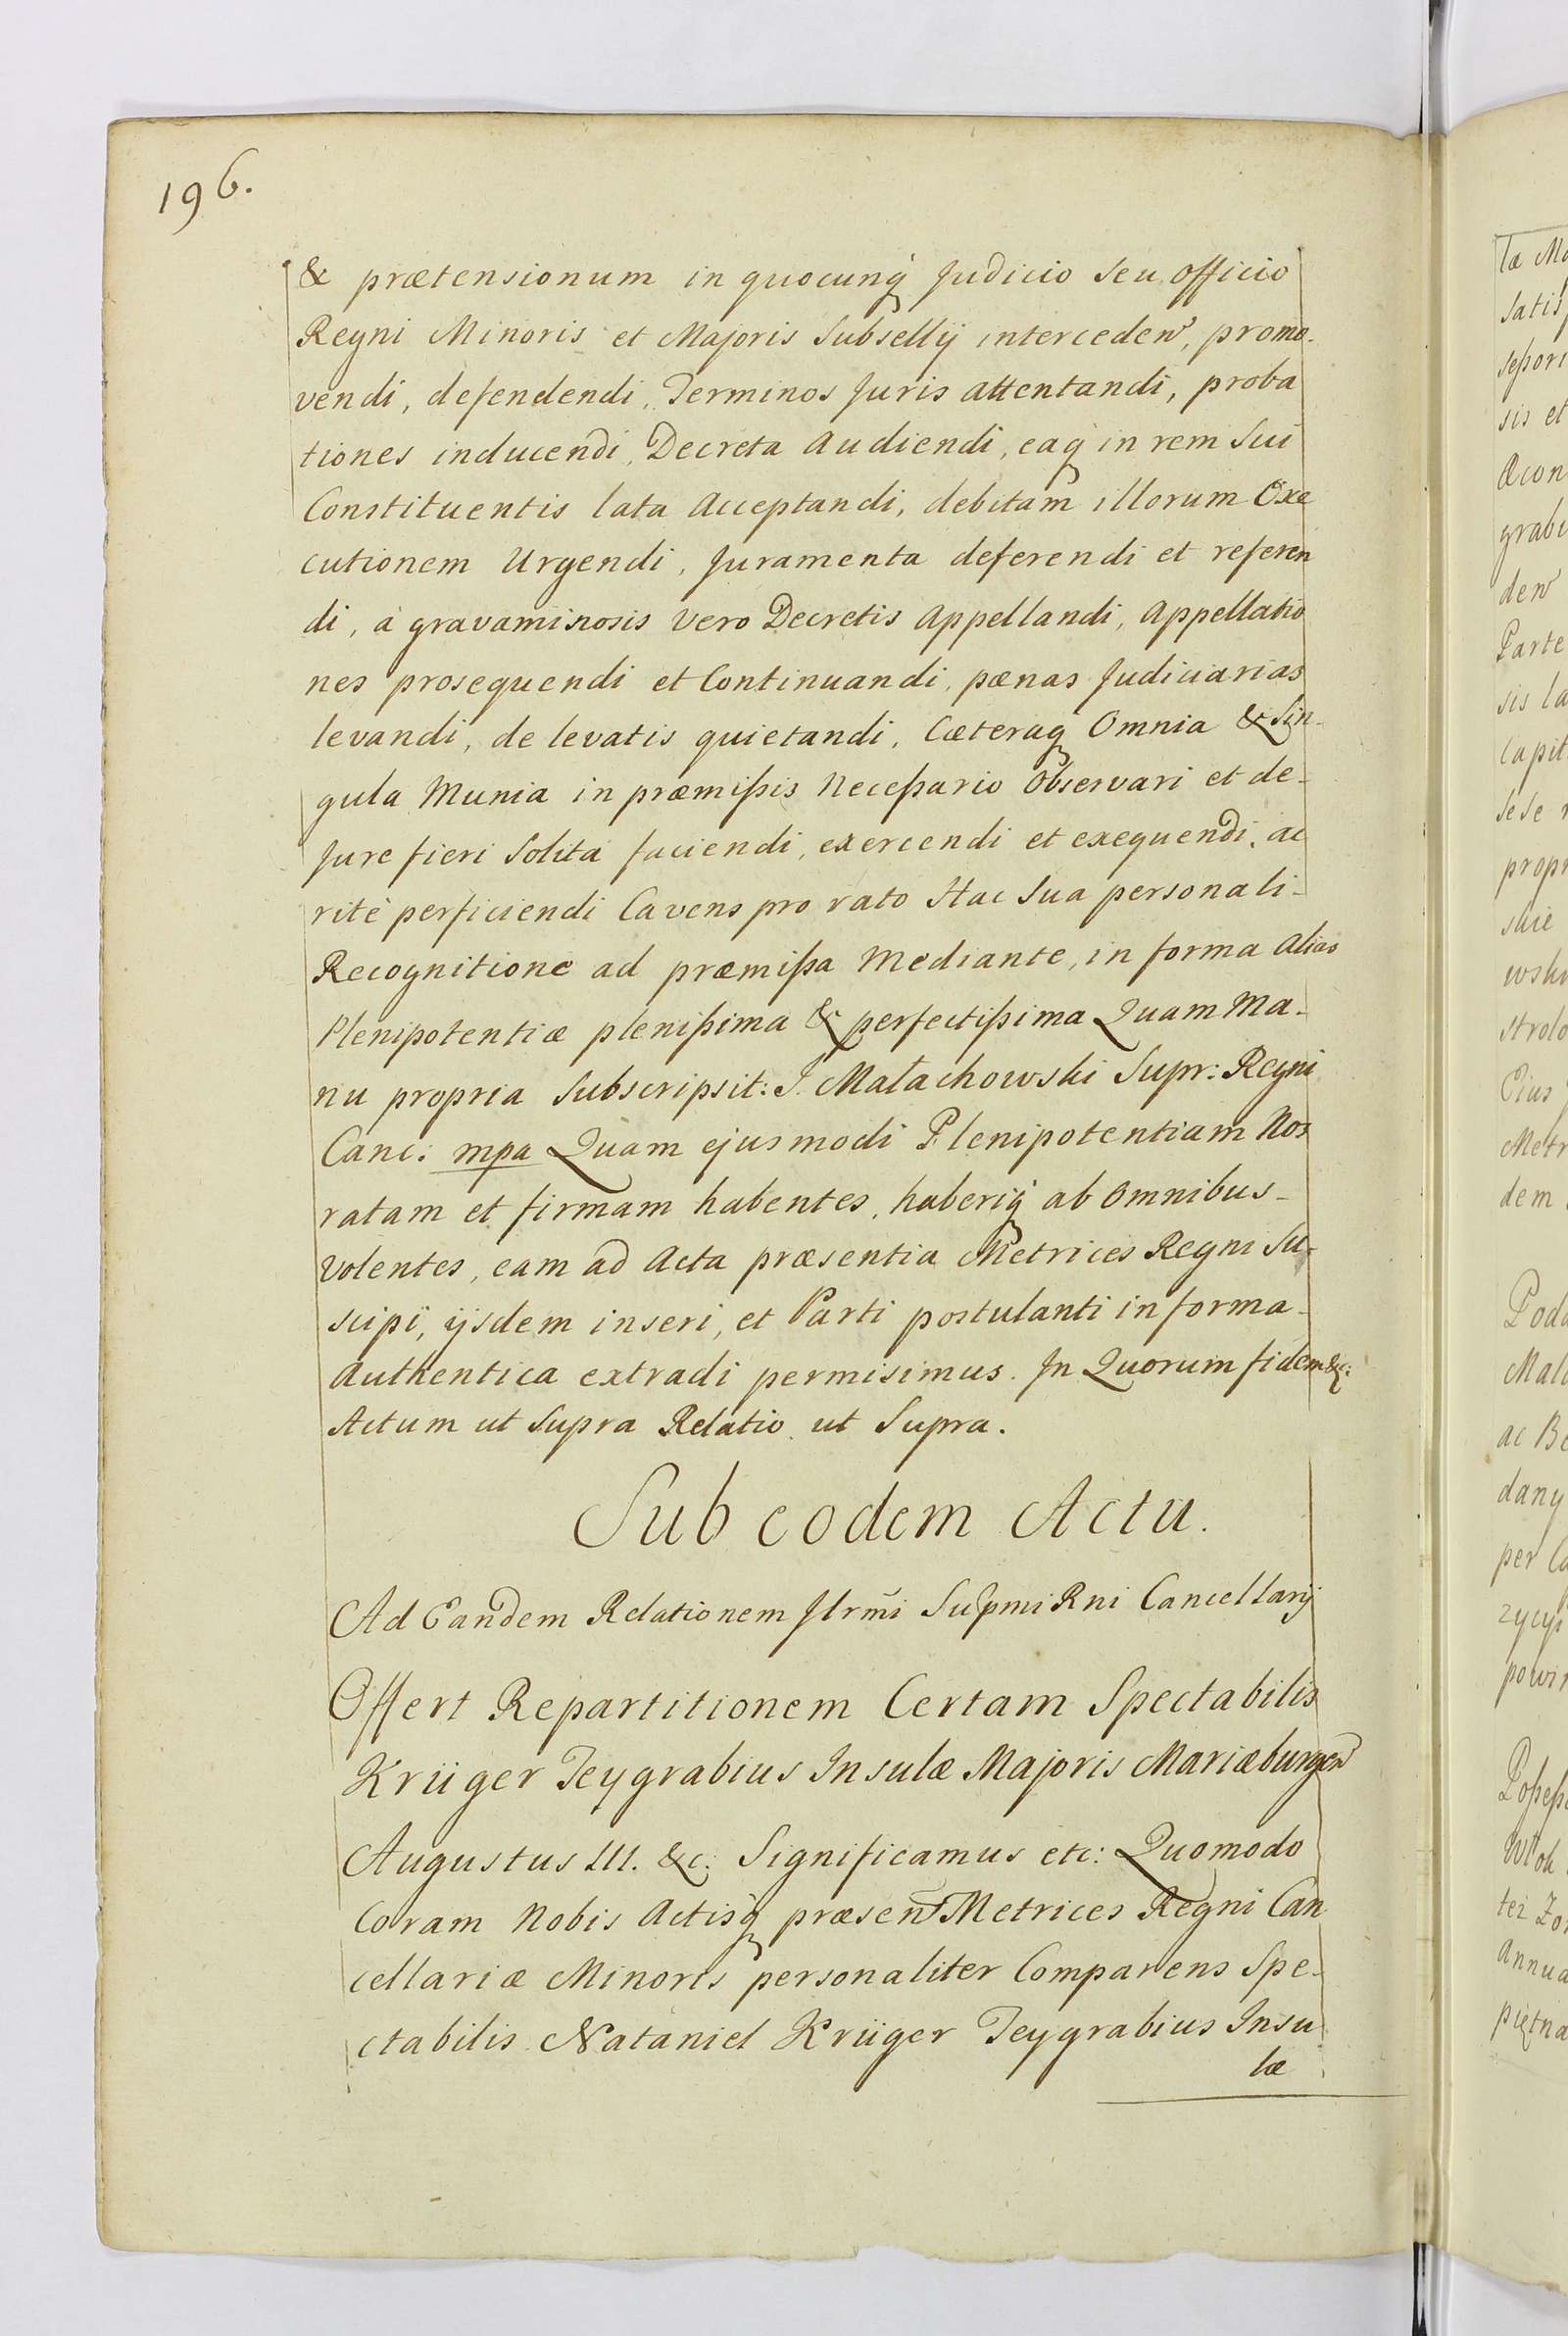 196.
& prætensionum in quocunq Judicio seu Officio
Regni Minoris et Majoris Subsellij interceden, promo-
vendi, defendendi, Terminos Juris attentandi, proba
tiones inducendi, Decreta Audiendi, eaq in rem Sui
Constituentis lata Acceptandi, debitam illorum Exe
cutionem Urgendi, Juramenta deferendi et referen
di, à gravaminosis vero Decretis Appellandi, Appellatio
nes prosequendi et Continuandi, pænas Judiciarias
levandi, de levatis quietandi, Cæteraq Omnia & Sin-
gula Munia in præmißis Neceßario Observari et de-
Jure fieri Solita faciendi, exercendi et exequendi, ac
ritè perficiendi Cavens pro rato Hac Sua personali-
Recognitione ad præmißa Mediante, in forma Alias
Plenipotentiæ plenißima & perfectißima Quam Ma-
nu propria Subscripsit: J. Małachowski Supr: Regni
Canc: mpa Quam ejusmodi Plenipotentiam Nos
ratam et firmam habentes, haberiq ab Omnibus-
Volentes, eam ad Acta præsentia Metrices Regni Su-
scipi, ijsdem inseri, et Parti postulanti in forma-
Authentica extradi permisimus. In Quorum fidem &c:
Actum ut Supra Relatio ut Supra.
Sub eodem Actu.
Ad Eandem Relationem Jlrmi Supmi Rni Cancellarij
Offert Repartitionem Certam Spectabilis
Krüger Teygrabius Insulæ Majoris Mariæburgen
Augustus III. &c: Significamus etc: Quomodo
Coram Nobis Actisq præsent Metrices Regni Can
cellariæ Minoris personaliter Comparens Spe-
ctabilis Nataniel Krüger Teygrabius Insu
læ
læ
satis
sis et
den
Parte
sis la
Capit
sese
propr
Eius
Metr
dem
dany
per
powin
Annua